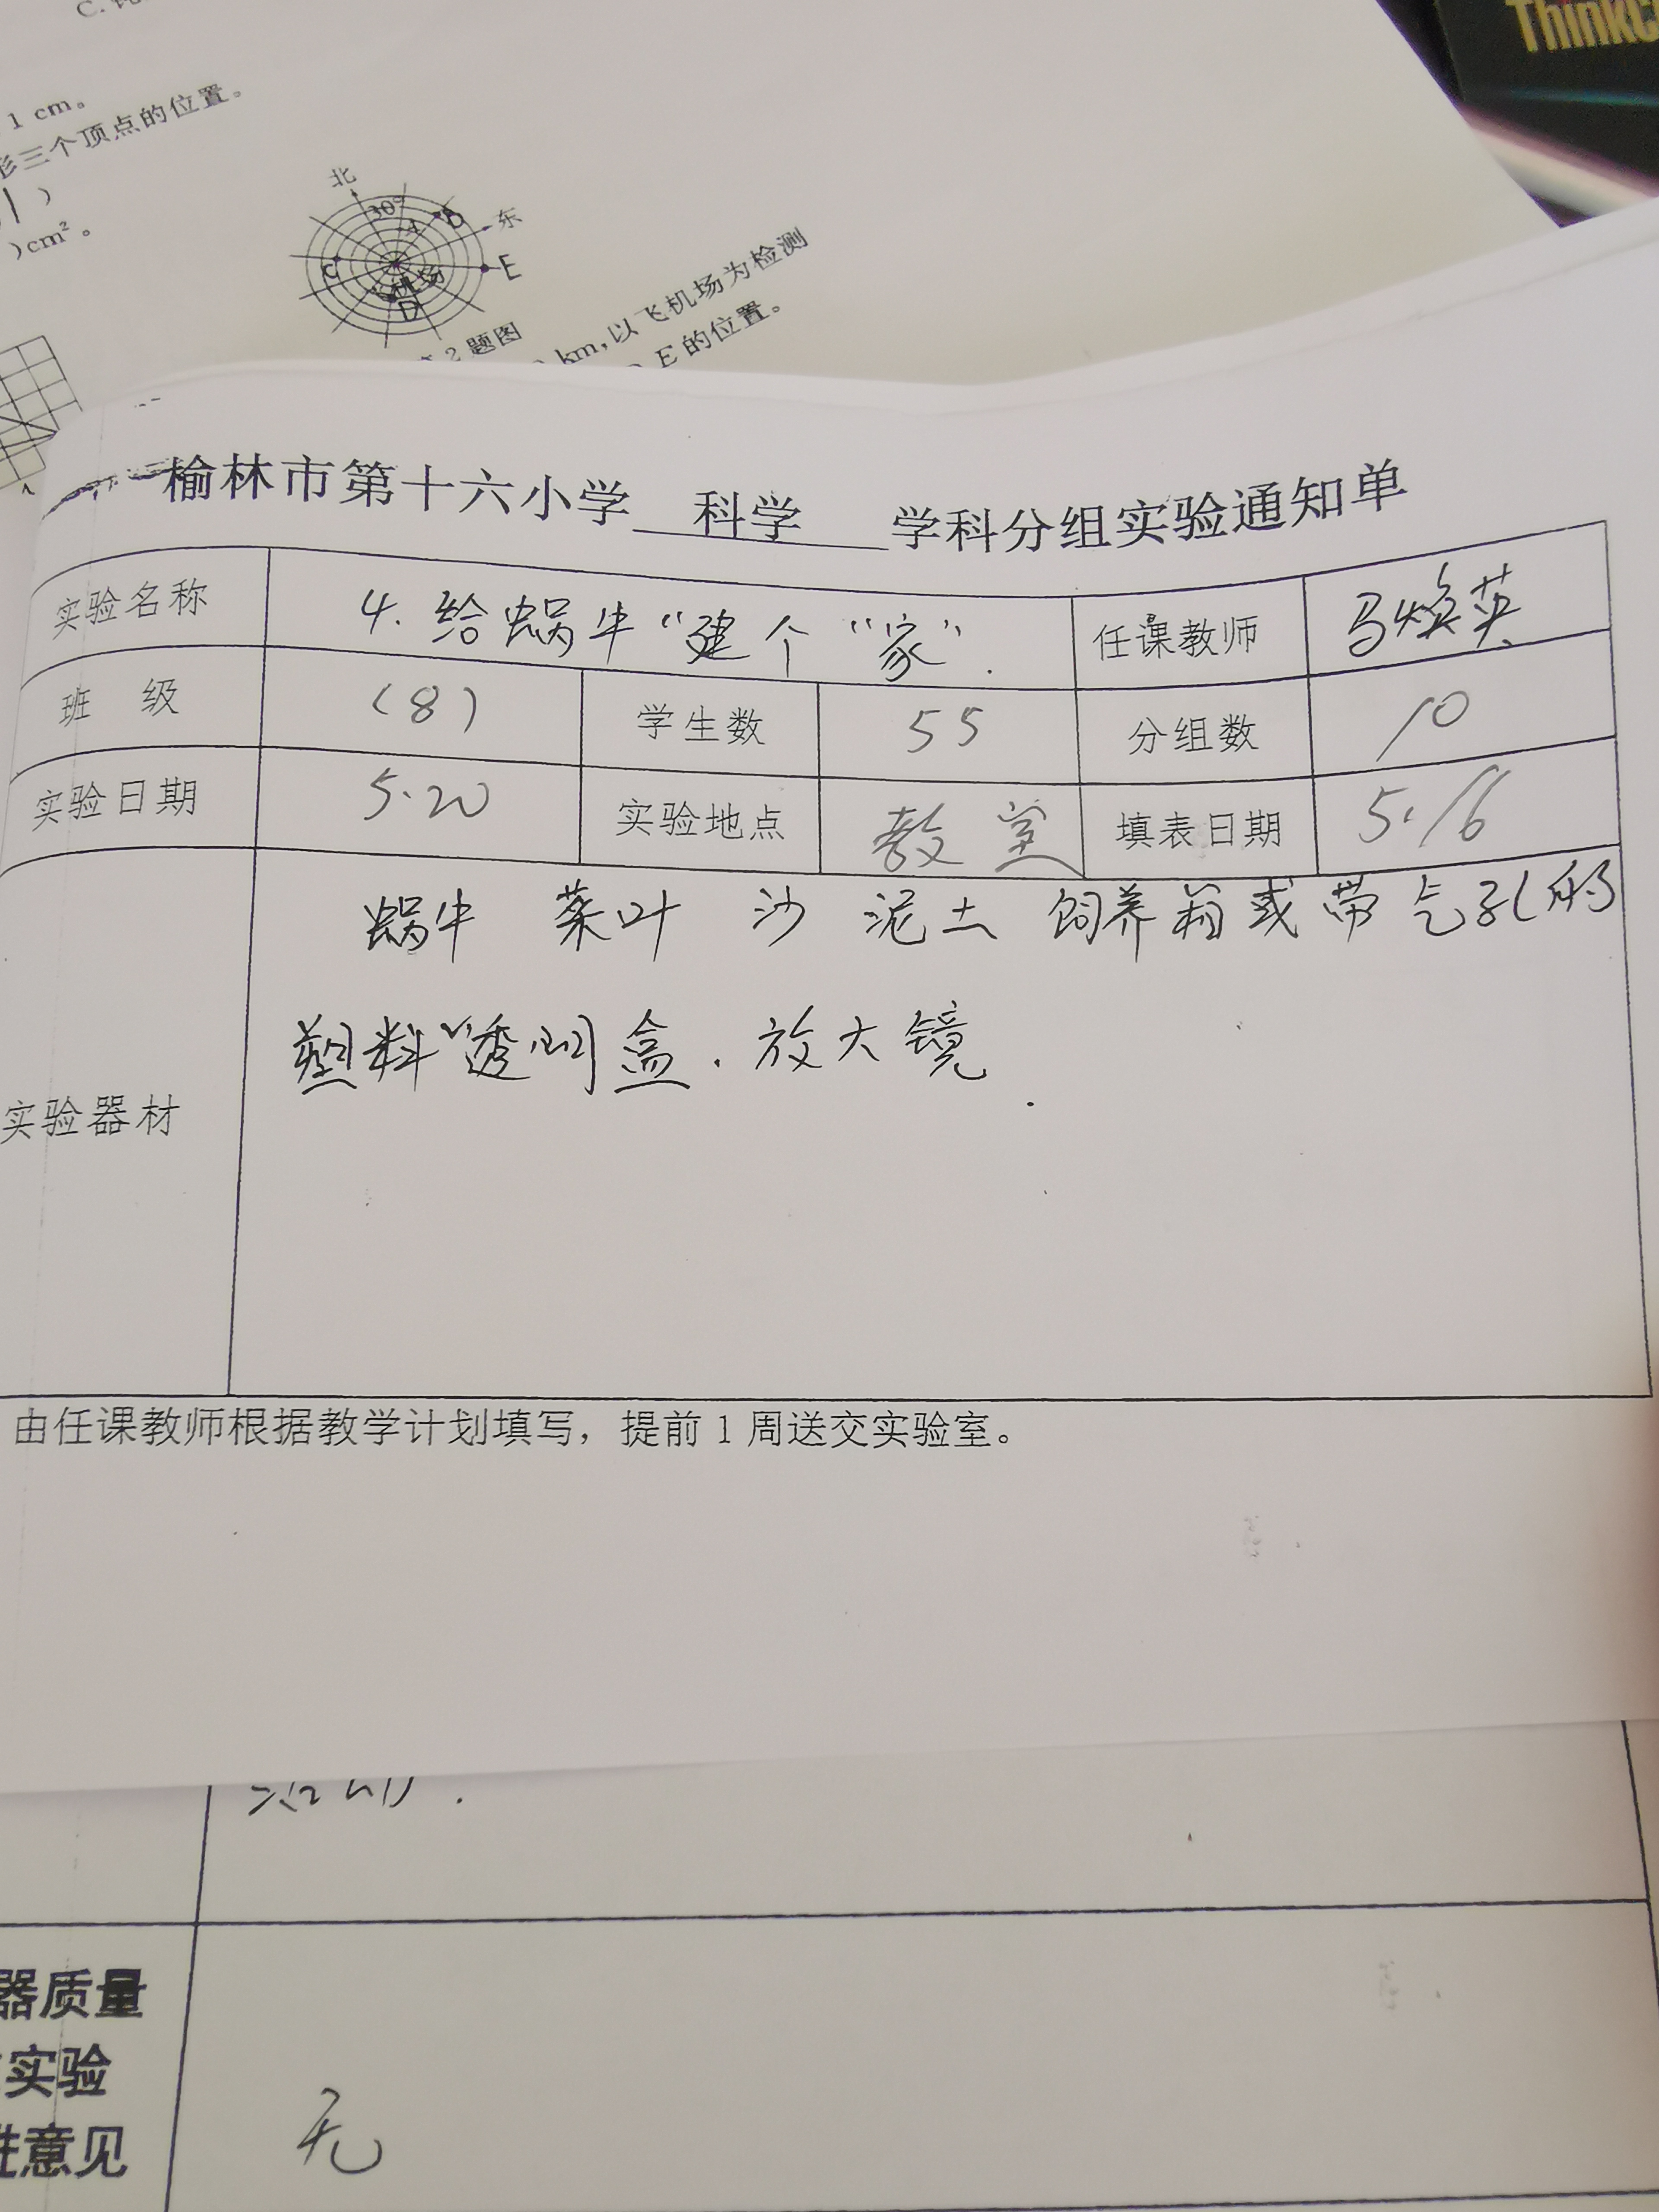 ThinkC
1 cm。
形三个顶点的位置。
)
)cm²。
北
30°
A
B
东
C
E
机场
D
2题图
km,以飞机场为检测
E的位置。
榆林市第十六小学 科学 学科分组实验通知单
实验名称 4. 给蜗牛“建个“家”. 任课教师 马焕英
班 级 (8) 学生数 55 分组数 10
实验日期 5.20 实验地点 教室 填表日期 5.16
蜗牛 菜叶 沙 泥土 饲养箱或带气孔的
塑料“透明盒. 放大镜.
实验器材
由任课教师根据教学计划填写，提前1周送交实验室。
器质量
实验
进意见
无